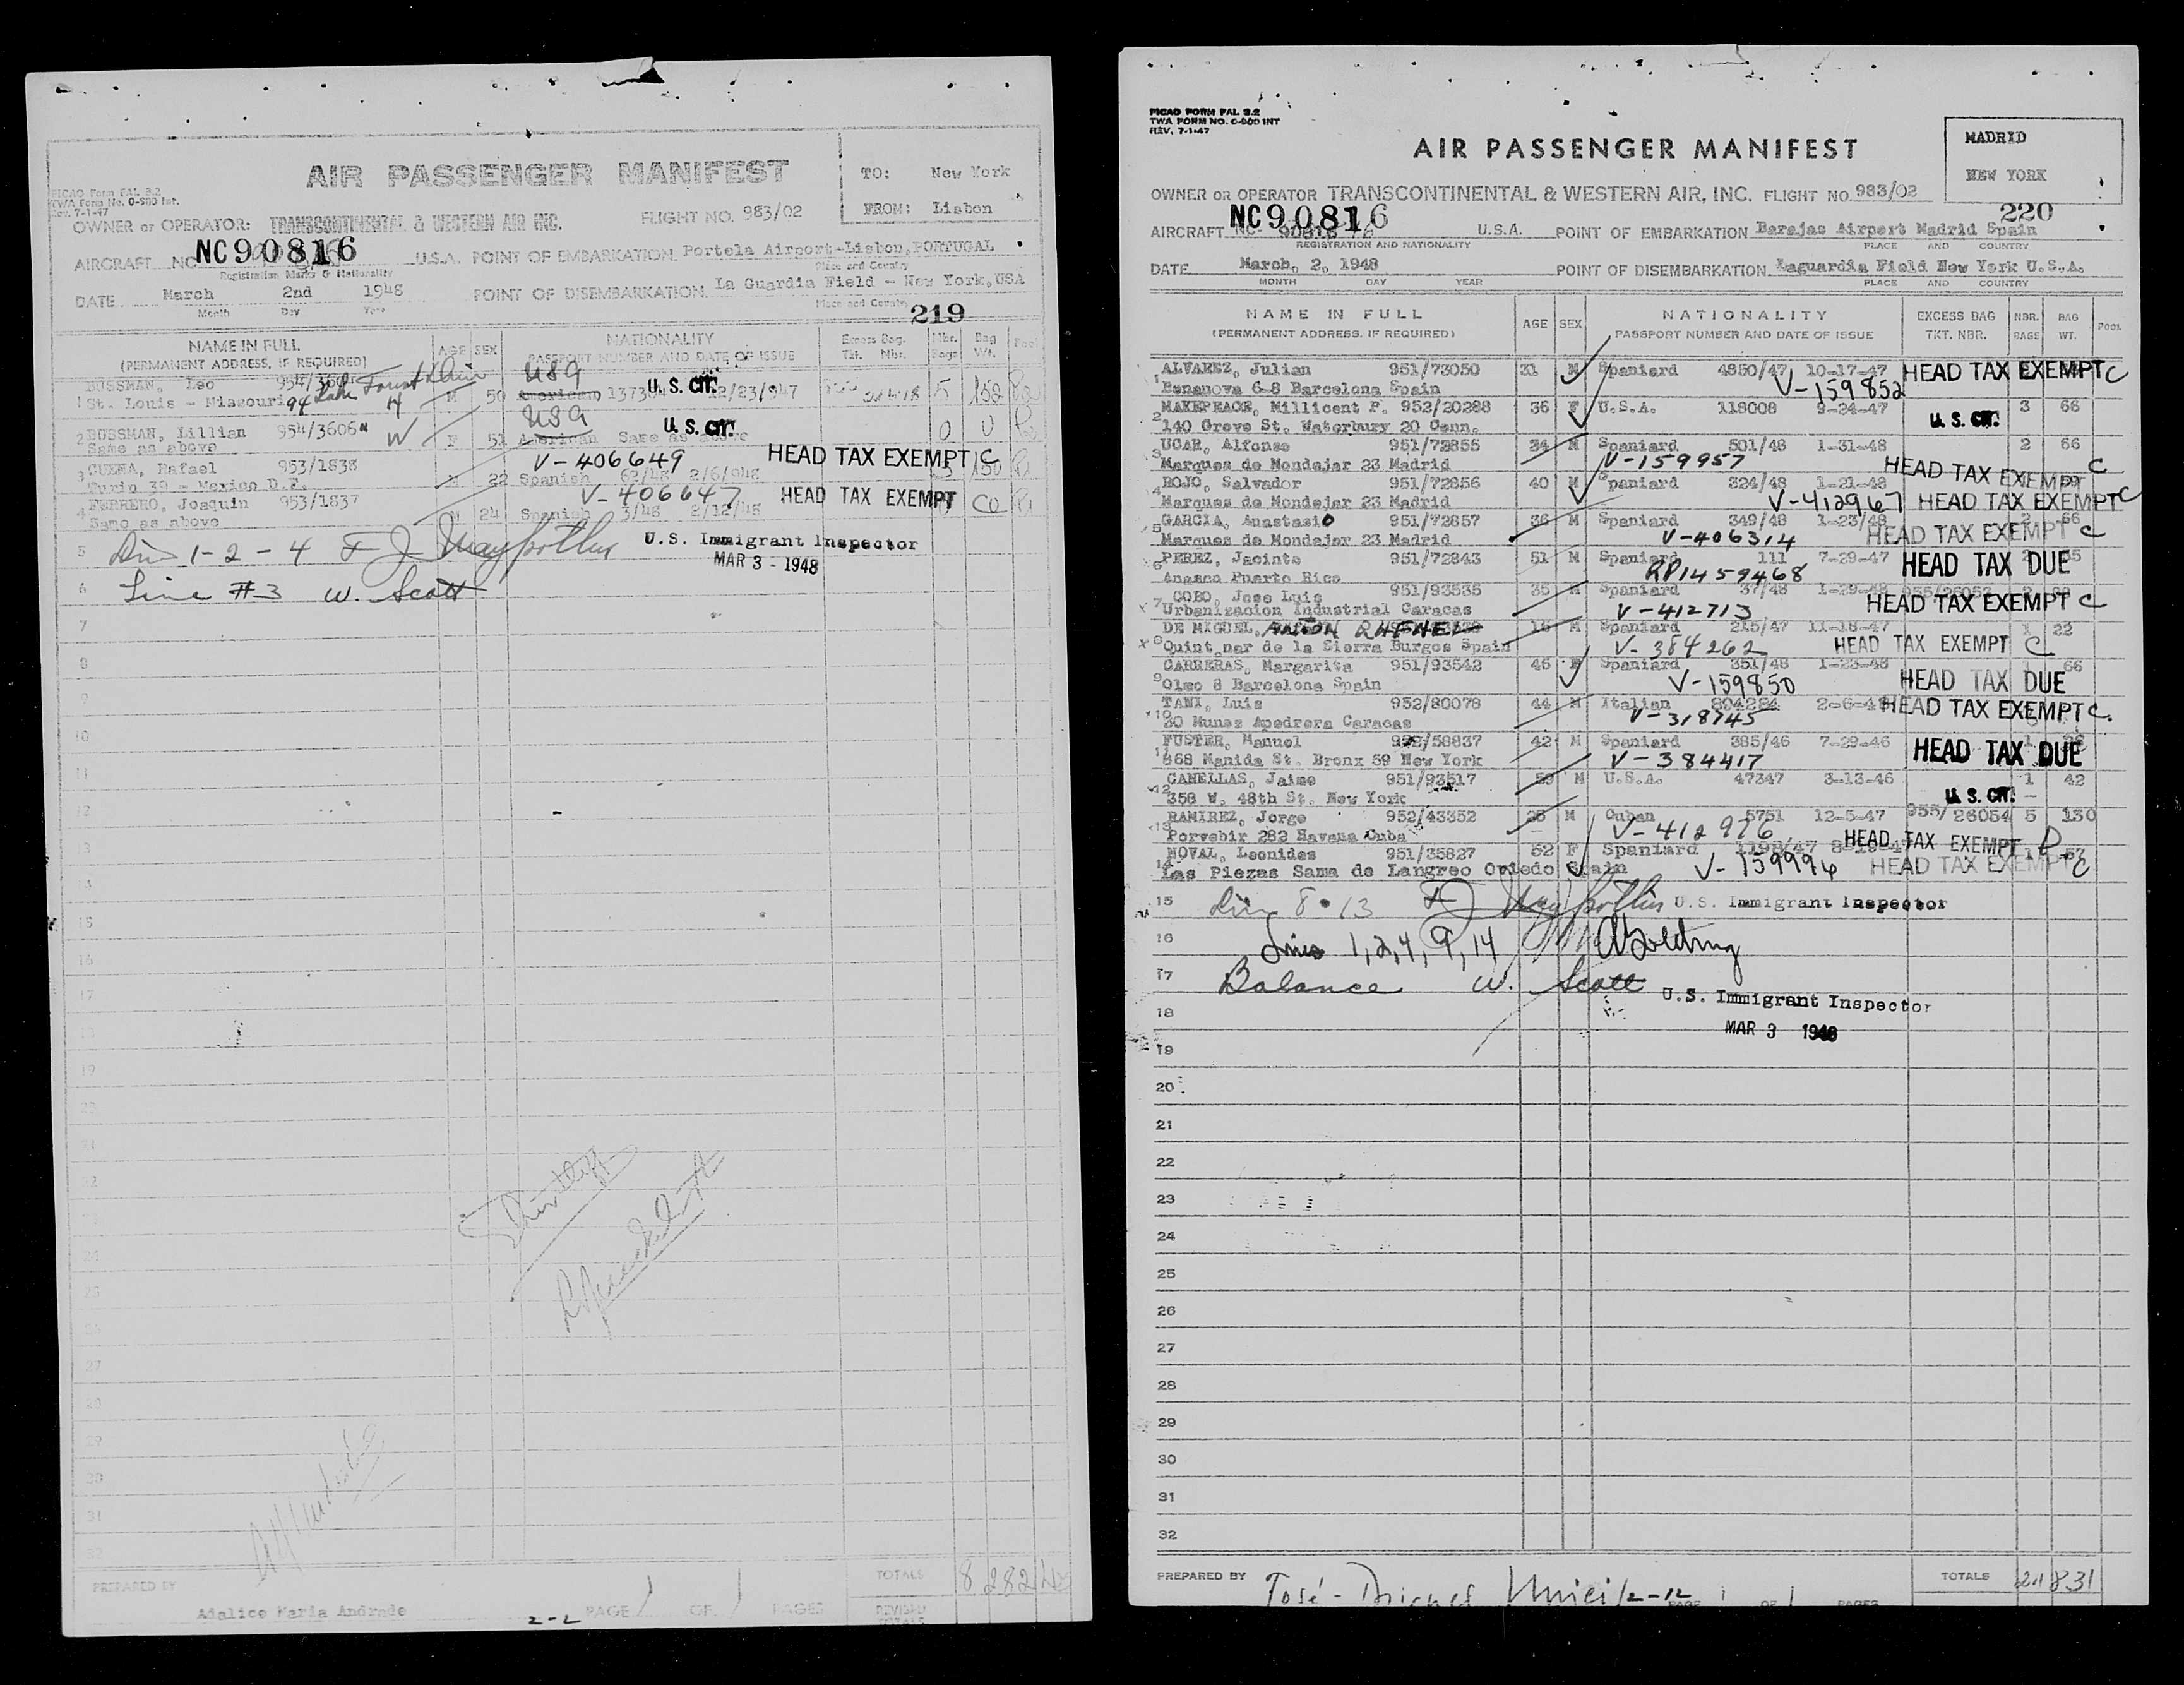 AIR PASSENGER MANIFEST
TO: New York
FROM: Lisbon
PICAO Form FAL 3.2
TWA Form No. 0-900 Int.
Rev. 7-1-47
OWNER or OPERATOR: TRANSCONTINENTAL & WESTERN AIR INC. FLIGHT NO. 983/02
AIRCRAFT NC 90816 U.S.A. POINT OF EMBARKATION Portela Airport-Lisbon, PORTUGAL
Registration Marks & Nationality Place and Country
DATE March 2nd 1948 POINT OF DISEMBARKATION La Guardia Field - New York, USA
Month Day Year Place and Country
219
NAME IN FULL AGE SEX NATIONALITY Excess Bag. Nbr. Bag Pool
(PERMANENT ADDRESS, IF REQUIRED) PASSPORT NUMBER AND DATE OF ISSUE Tkt. Nbr. Bags Wt.
BUSSMAN, Leo USA U.S. CIT.
1 St. Louis - Missouri 94 Lake Forest H M 50 American 12/23/947 5 152
USA U.S. CIT.
2 BUSSMAN, Lillian 954/3606 W F 51 American Same as above 0 0
Same as above V-406649 HEAD TAX EXEMPT C
3 CUEMA, Rafael 953/1838 M 22 Spanish 62/48 2/6/948 150
Turin 39 - Mexico D.F. V-406647 HEAD TAX EXEMPT
4 FERRERO, Joaquin 953/1837 M 24 Spanish 3/48 2/12/48 Co
Same as above
5 1-2-4 U.S. Immigrant Inspector
MAR 3 - 1948
6 Line #3 W. Scott
7
8
9
10
11
12
13
15
16
17
19
27
31
PREPARED BY TOTALS 8 282
Adalice Maria Andrade 2-2 PAGE 1 OF 1 PAGES REVISED TOTALS
PICAO FORM FAL 3.2
TWA FORM NO. 0-900 INT
REV. 7-1-47
AIR PASSENGER MANIFEST
MADRID
NEW YORK
OWNER OR OPERATOR TRANSCONTINENTAL & WESTERN AIR, INC. FLIGHT NO. 983/02
220
AIRCRAFT NC90816 U.S.A. POINT OF EMBARKATION Barajas Airport Madrid Spain
REGISTRATION AND NATIONALITY PLACE AND COUNTRY
DATE March, 2, 1948 POINT OF DISEMBARKATION Laguardia Field New York U.S.A.
MONTH DAY YEAR PLACE AND COUNTRY
NAME IN FULL AGE SEX NATIONALITY EXCESS BAG NBR. BAG POOL
(PERMANENT ADDRESS, IF REQUIRED) PASSPORT NUMBER AND DATE OF ISSUE TKT. NBR. BAGS WT.
ALVAREZ, Julian 951/73050 31 M Spaniard 4850/47 10-17-47 HEAD TAX EXEMPT C
1 Bonanova 6-8 Barcelona Spain V-159852
MAKEPEACE, Millicent F. 952/20288 36 F U.S.A. 118008 9-24-47 3 66
2 140 Grove St. Waterbury 20 Conn. U.S. CIT.
UCAR, Alfonso 951/72855 34 M Spaniard 501/48 1-31-48 2 66
3 Marques de Mondejar 23 Madrid V-159957 HEAD TAX EXEMPT C
ROJO, Salvador 951/72856 40 M Spaniard 324/48 1-21-48
4 Marques de Mondejar 23 Madrid V-412967 HEAD TAX EXEMPT C
GARCIA, Anastasio 951/72857 36 M Spaniard 349/48 1-23/48 2 66
5 Marques de Mondejar 23 Madrid V-406314 HEAD TAX EXEMPT C
PEREZ, Jacinto 951/72843 51 M Spaniard 111 7-29-47 HEAD TAX DUE
6 Anasco Puerto Rico RP1459468
COBO, Jose Luis 951/93535 35 M Spaniard 37/48 1-29-48 955/26053
x 7 Urbanizacion Industrial Caracas V-412713 HEAD TAX EXEMPT C
DE MIGUEL, ANTON RAFAEL M Spaniard 215/47 11-18-47 1 22
x 8 Quintanar de la Sierra Burgos Spain V-384262 HEAD TAX EXEMPT C
CARRERAS, Margarita 951/93542 46 F Spaniard 351/48 1-23-48 66
9 Olmo 8 Barcelona Spain V-159850 HEAD TAX DUE
TANI, Luis 952/80078 44 M Italian 804284 2-6-48 HEAD TAX EXEMPT C.
x 10 30 Munoz Apedrera Caracas V-318745
FUSTER, Manuel 952/58837 42 M Spaniard 385/46 7-29-46 HEAD TAX DUE
11 868 Manida St. Bronx 59 New York V-384417
CANELLAS, Jaime 951/93517 59 M U.S.A. 47347 3-13-46 1 42
x 12 358 W. 48th St. New York U.S. CIT.
RAMIREZ, Jorge 952/43352 25 M Cuban 5751 12-5-47 955/26054 5 130
x 13 Porvebir 282 Havana Cuba V-412976 HEAD TAX EXEMPT
NOVAL, Leonides 951/35827 52 F Spaniard 1198/47 1 57
14 Las Piezas Sama de Langreo Oviedo Spain V-159994 HEAD TAX EXEMPT C
15 8-13 U.S. Immigrant Inspector
16 Lines 1,2,4,9,14
17 Balance W. Scott
U.S. Immigrant Inspector
18 MAR 3 1948
19
20
21
22
23
24
25
26
27
28
29
30
31
32
PREPARED BY José 2-12 PAGE 1 OF 1 PAGES TOTALS 21 831